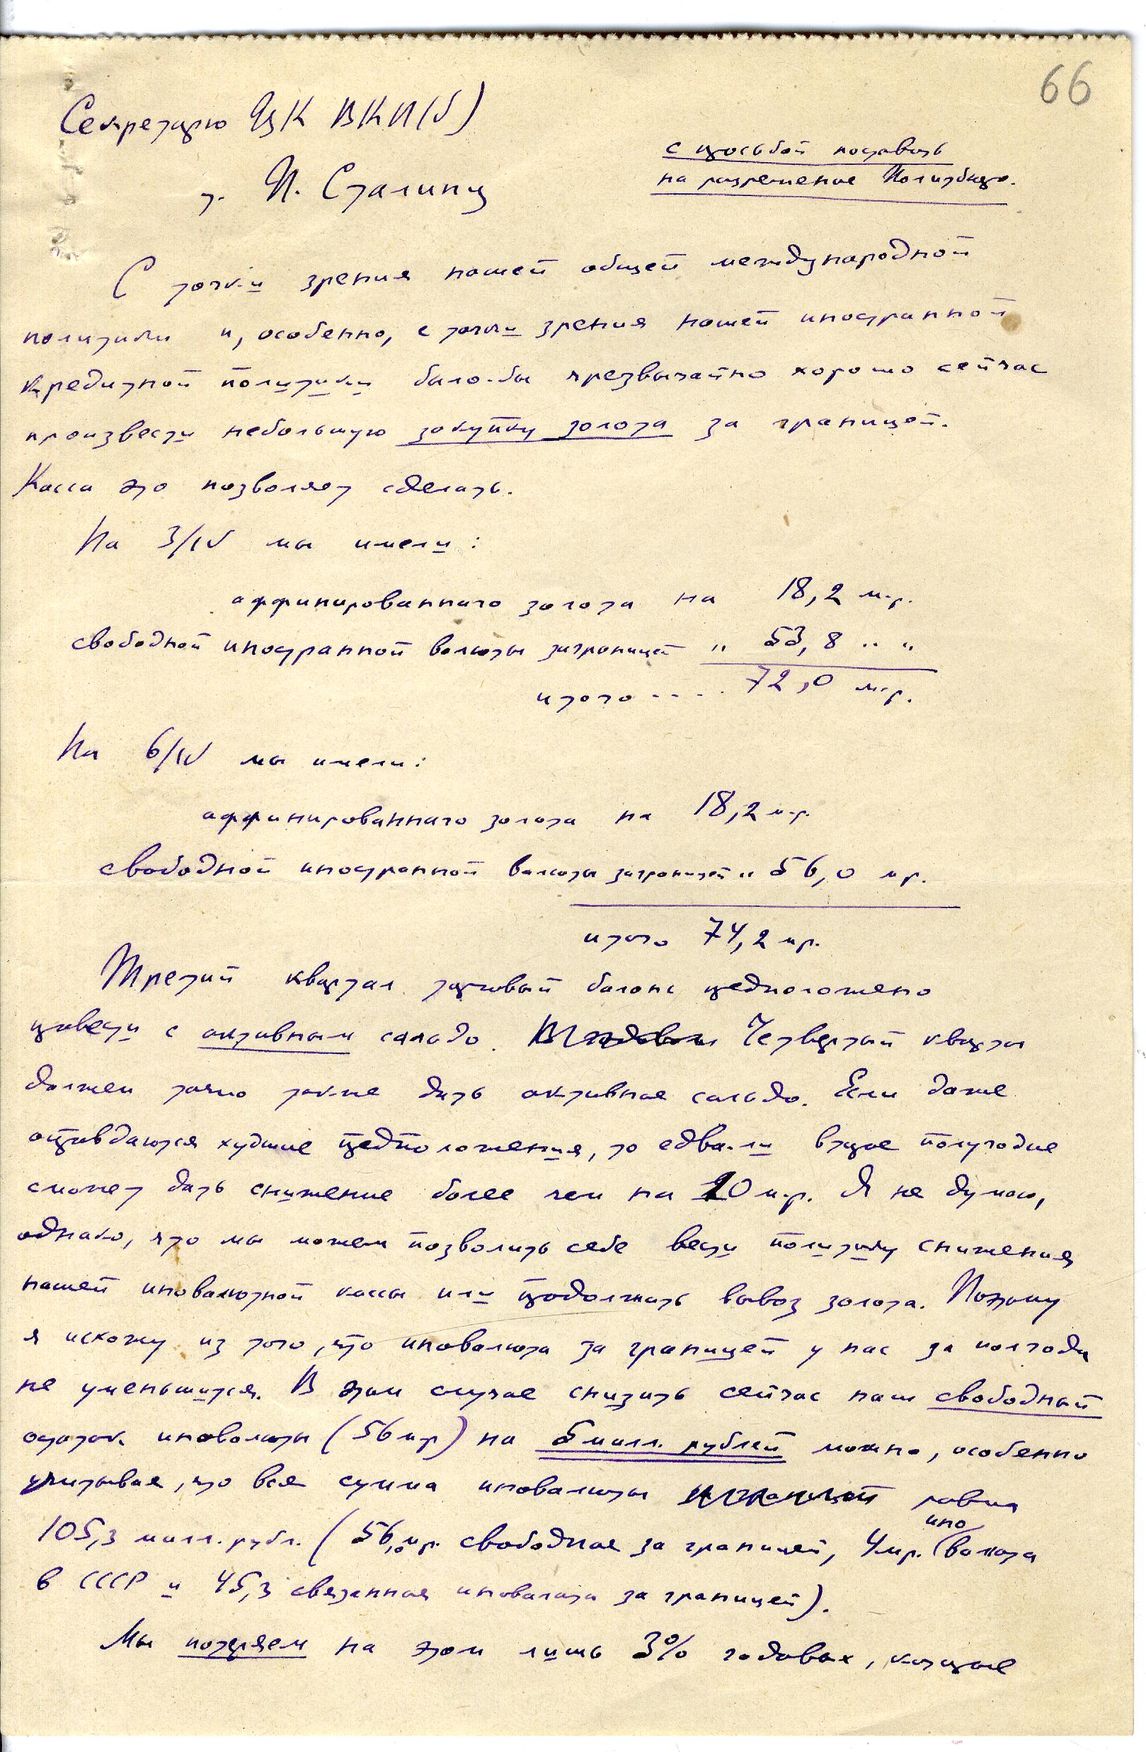 66
Секретарю ЦК ВКП(б)
с просьбой поставить
на разрешение Политбюро.
т. И. Сталину
С точки зрения нашей общей международной
политики и, особенно, с точки зрения нашей иностранной
кредитной политики было-бы чрезвычайно хорошо сейчас
произвести небольшую закупку золота за границей.
Касса это позволяет сделать.
На 3/IV мы имели:
аффинированнаго золота на 18,2 м.р.
свободной иностранной валюты заграницей " 53,8 " "
итого .... 72,0 м.р.
На 6/IV мы имели:
аффинированнаго золота на 18,2 м.р.
свободной иностранной валюты заграницей " 56,0 мр.
итого 74,2 мр.
Третий квартал торговый баланс предположено
провести с активным сальдо. Четвертый квартал
должен точно также дать активное сальдо. Если даже
оправдаются худшие предположения, то едва-ли второе полугодие
сможет дать снижение более чем на 20 м.р. Я не думаю,
однако, что мы можем позволить себе вести политику снижения
нашей иновалютной кассы или продолжать вывоз золота. Поэтому
я исхожу из того, что иновалюта за границей у нас за полгода
не уменьшится. В этом случае снизить сейчас наш свободный
остаток иновалюты (56 мр) на 5 милл. рублей можно, особенно
учитывая, что вся сумма иновалюты равна
105,3 милл. рубл. (56,0 мр. свободная за границей, 4 мр. иновалюта
в СССР и 45,3 связанная иновалюта за границей).
Мы потеряем на этом лишь 3% годовых, которые